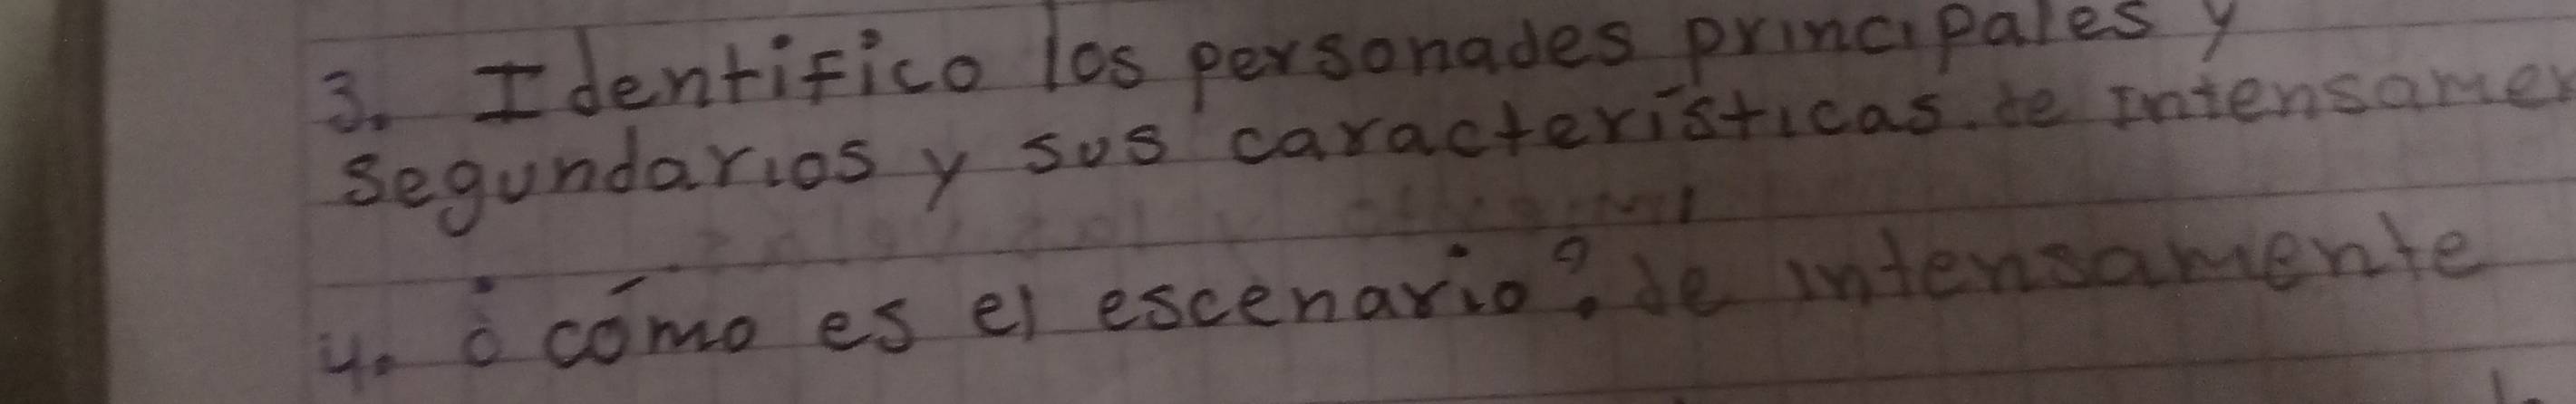 3. Identifico los personades principales y
segundarios y sus características. de Intensamen
4. ¿cómo es el escenario? de intensamente